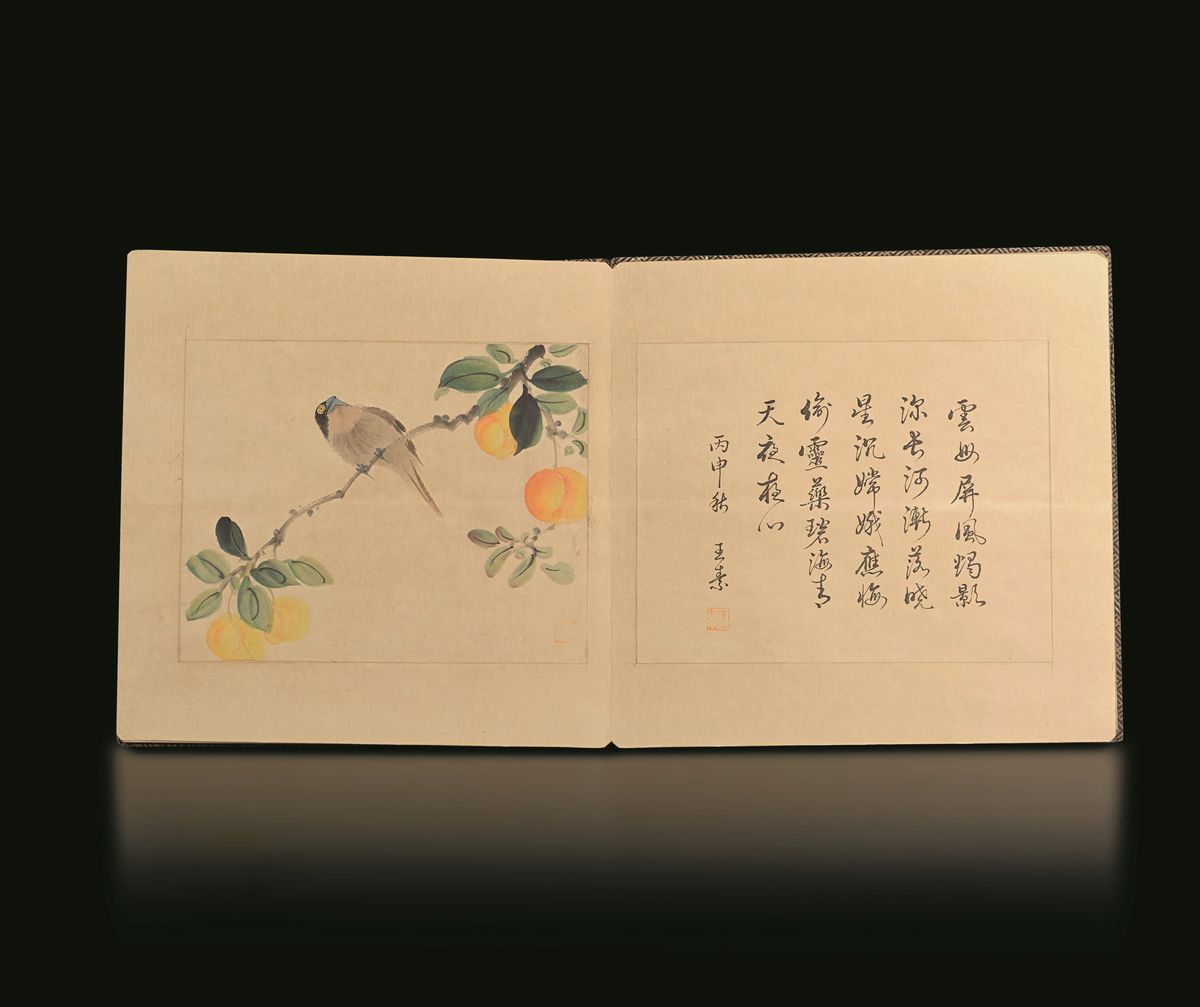 雲母屏風燭影
深長河漸落曉
星沉嫦娥應悔
偷靈藥碧海青
天夜夜心
丙申秋 王素